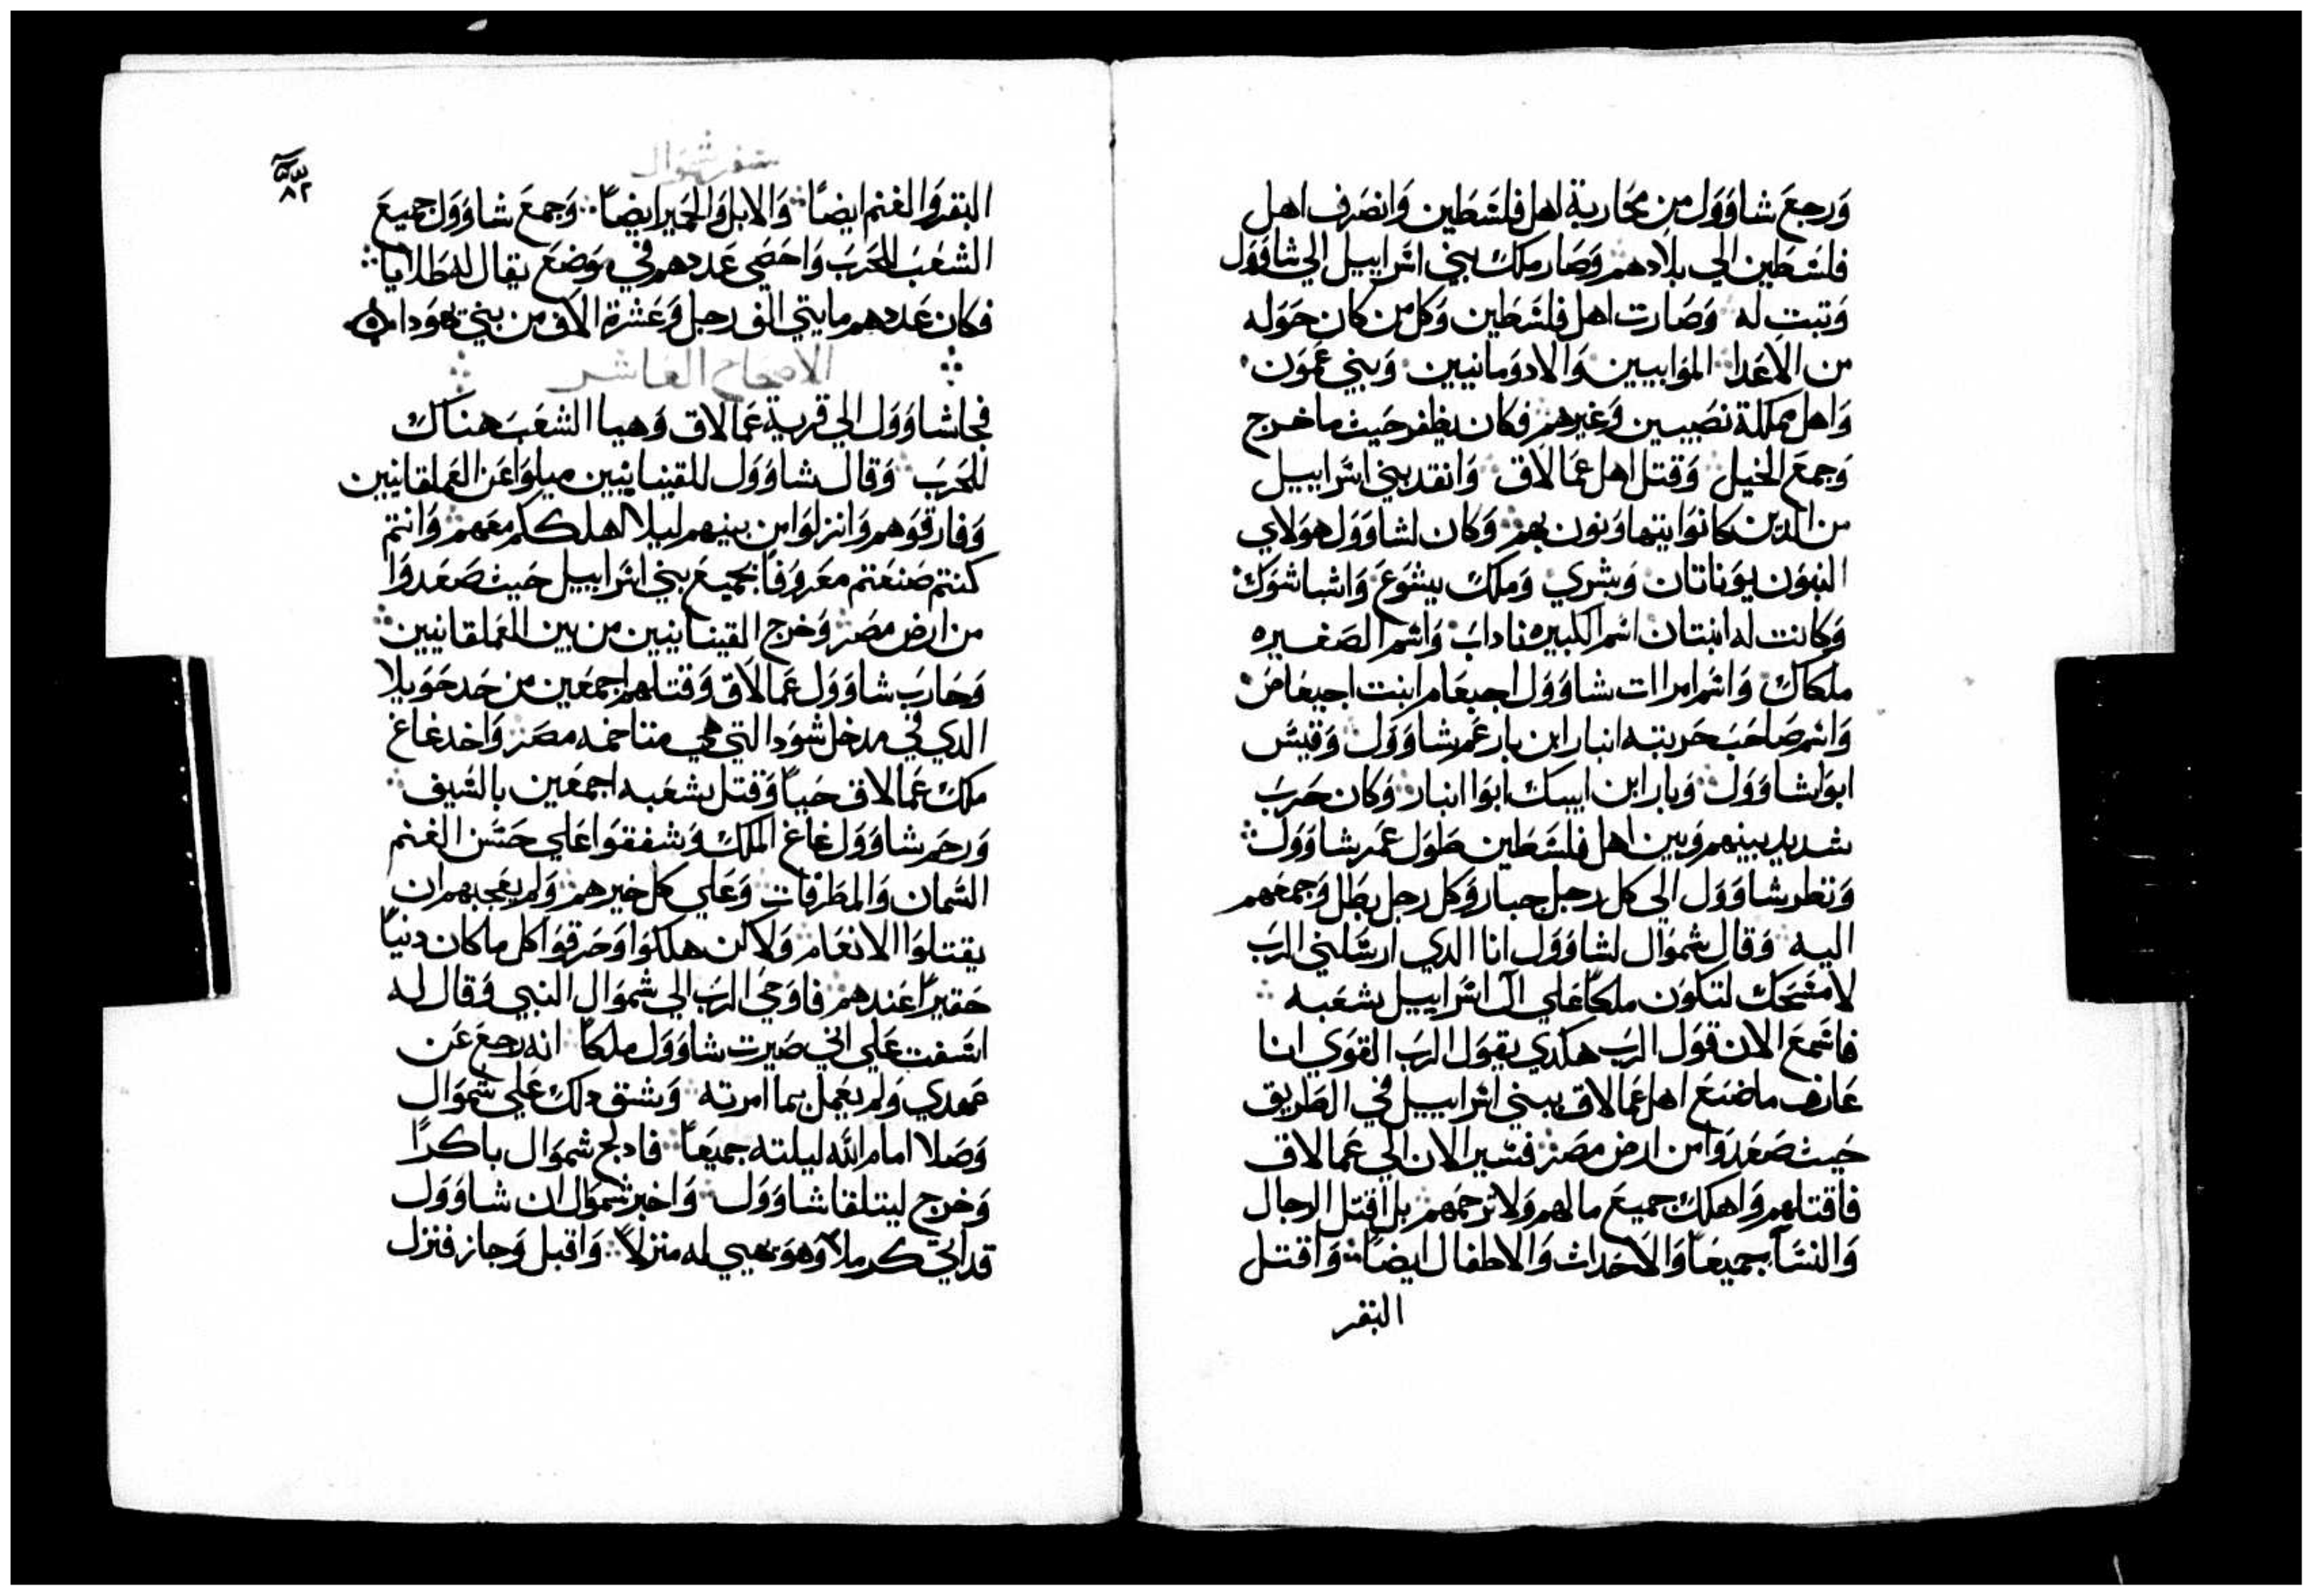 وَرجعَ شاوَوَل من محَاربة اهل فلسَطين وَانصَرف اهل
فلسَطين الي بلادهم وَصَار ملك بني اسَراييل الي شاوَوَل
وَتبت له وَصَارت اهل فلسَطين وَكل من كان حَوَله
من الاعَدا الموَابيين وَالادوَمانيين وَبني عَموَن
وَاهل مملكة نصَيبين وَغيرهم فكان يظفر حَيث ما خرج
وَجمعَ الخيل وَقتل اهل عَمالاق وَانقد بني اسَراييل
من الدين كانوَا يتهاوَنون بهم وَكان لشاوَوَل هوَلاي
البنوَن يوَناتان وَيشري وَملك يشوَعَ وَاشباشوَك
وَكانت له ابنتان اسَم الكبيره ناداب وَاسَم الصَغيره
ملكاك وَاسَم امراات شاوَوَل اجيعَام ابنت اجيمعَاصَ
وَاسَم صَاحَبَ حَربته انبار ابن بار عَم شاوَوَل وَقيسَ
ابوَا شاوَوَل وَبار ابن ابيك ابوَا انبار وَكان حَربَ
شديد بينهم وَبين اهل فلسَطين طوَل عَمر شاوَوَل
وَنظر شاوَوَل الي كل رجل جبار وَكل رجل بطل وَجمعَهم
اليه وَقال شموَال لشاوَوَل انا الدي ارسَلني الربَ
لامسَحَك لتكوَن ملكاً عَلي ال اسَراييل شعَبه
فاسَمعَ الان قوَل الربَ هكدي يقوَل الربَ القوَي انا
عَارف ما صَنعَ اهل عَمالاق ببني اسَراييل في الطريق
حَيث صَعَدوَا من ارض مصَر فسَير الان الي عَمالاق
فاقتلهم وَاهلك جميعَ ما لهم وَلا ترحَمهم بل اقتل الرجال
وَالنسَا جميعَاً وَالاحَداث وَالاطفال ايضَاً وَاقتل
البقر
سَفر شموَال
٨٢
البقر وَالغنم ايضَاً وَالابل وَالحَمير ايضَاً وَجمعَ شاوَوَل جميعَ
الشعَبَ للحَربَ وَاحَصَي عَددهم في موَضعَ يقال له طلايا
فكان عَددهم مايتي الف رجل وَعَشرة الاف من بني يهوَدا
الاصحَاح العَاشر
فجا شاوَوَل الي قرية عَمالاق وَهيا الشعَبَ هناك
للحَربَ وَقال شاوَوَل للقينايين ميلوَا عَن العَملقانيين
وَفارقوَهم وَانزلوَا من بينهم ليلا اهلككم معَهم وَانتم
كنتم صَنعَتم معَروَفاً بجميعَ بني اسَراييل حَيث صَعَدوَا
من ارض مصَر وَخرج القينايين من بين العَملقانيين
وَحَاربَ شاوَوَل عَمالاق وَقتلهم اجمعَين من حَد حَوَيلا
الدي في مدخل شوَد التي هي متاخمه مصَر وَاخد غاغ
ملك عَمالاق حَياً وَقتل شعَبه اجمعَين بالسَيف
وَرحَم شاوَوَل غاغ الملك وَشفقوَا عَلي حَسَن الغنم
السَمان وَالمطرفات وَعَلي كل خيرهم وَلم يعَجبهم ان
يقتلوَا الانعَام وَلاكن هلكوَا وَحَرقوَا كل ما كان دنياً
حَقيراً عَندهم فاوَحَي الربَ الي شموَال النبي وَقال له
اسَفت عَلي اني صَيرت شاوَوَل ملكاً انه رجعَ عَن
عَهدي وَلم يعَمل بما امرته وَشق دلك عَلي شموَال
وَصَلا امام الله ليلته جميعَاً فادلج شموَال باكراً
وَخرج ليتلقا شاوَوَل وَاخبر شموَال ان شاوَوَل
قد اتي كرملا وَهوَ يهيي له منزلاً وَاقبل وَجاز فنزل